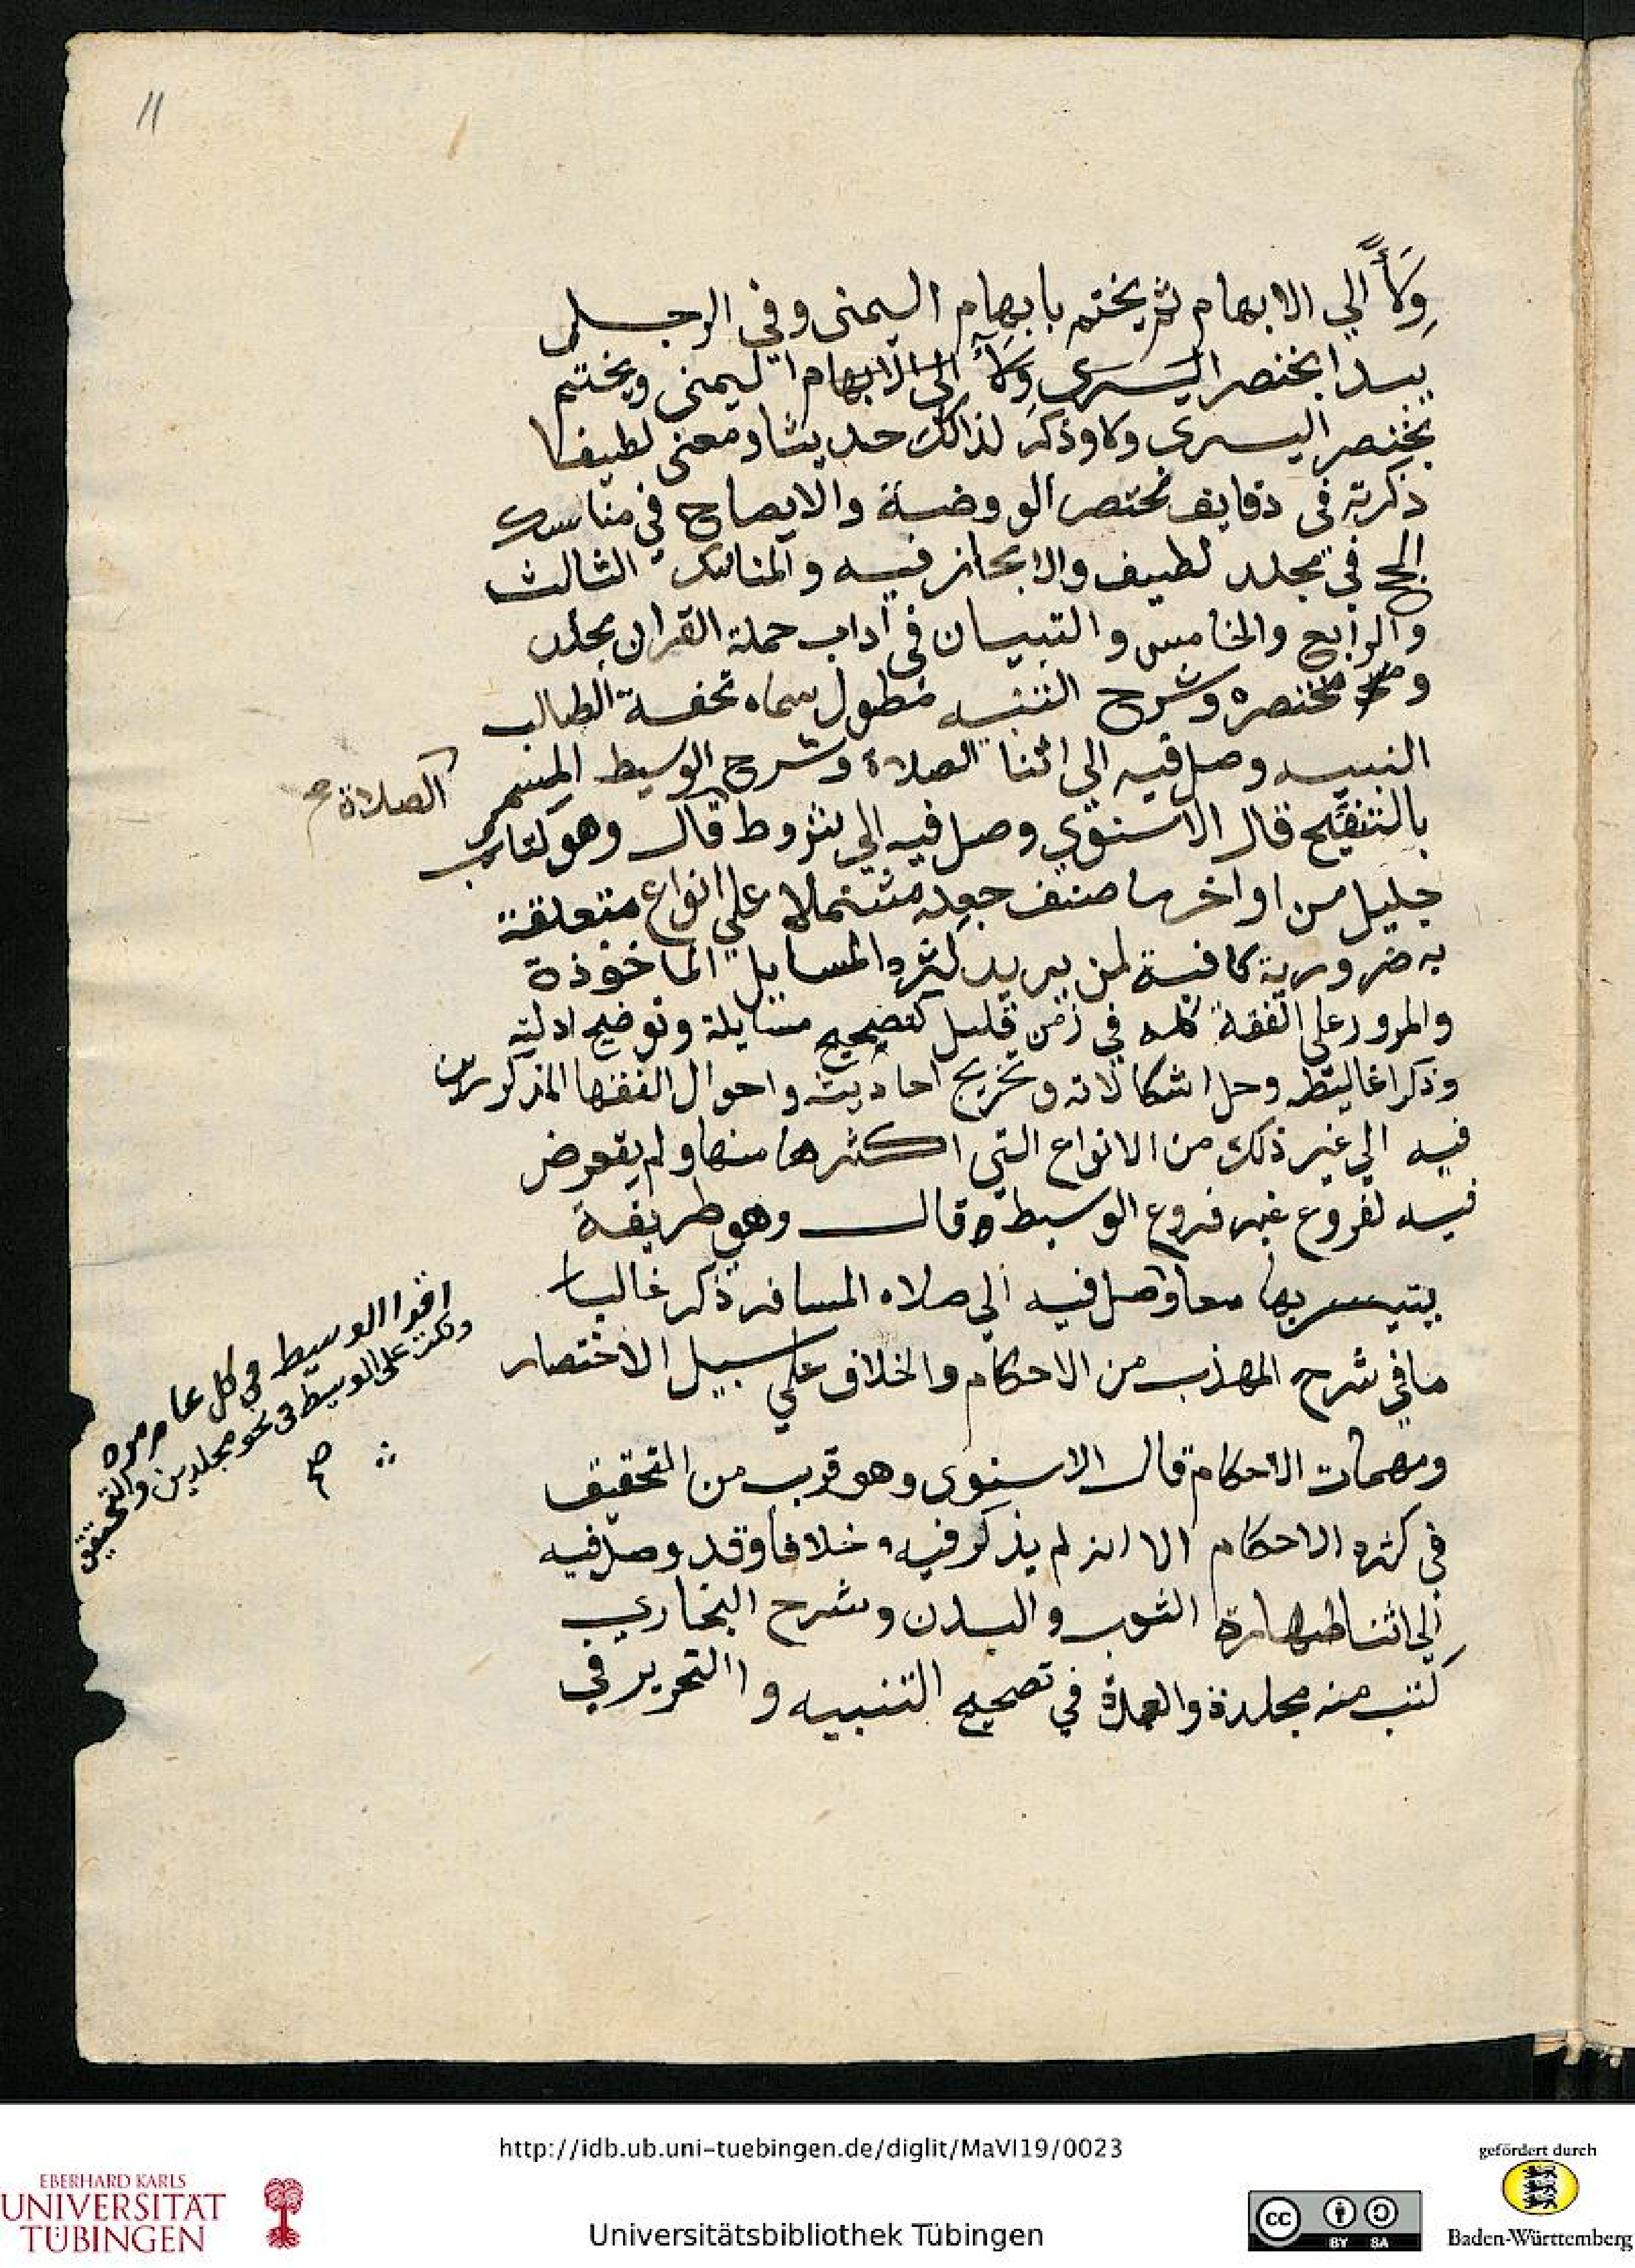 11
وِلَاءً الي الابهام ثم يختم بابهام اليمنى وفي الرجل
يبدا بخنصر اليسرى وِلَاءً الى الابهام اليمنى ويختم
بخنصر اليسرى ولا وذكر لذالك حديثا ومعنى لطيفا
ذكرته فى دقايق مختصر الروضة والايضاح في مناسك
الحج في مجلد لطيف والايجاز فيه والمناسك الثالث
والرابع والخامس والتبيان في آداب حملة القران مجلد
ومختصره وشرح التنبيه مطول سماه تحفة الطالب
النبيه وصل فيه الى اثنا الصلاة وشرح الوسيط المسمى
بالتنقيح قال الاسنوي وصل فيه الي شروط قال وهو كتاب
الصلاة صح
جليل من اواخر ما صنف جعله مشتملا علي انواع متعلقة
به ضرورية كافية لمن يريد كثرة المسايل الماخوذة
والمرور على الفقه كله في زمن قليل كتصحيح مسايلة وتوضيح ادلته
وذكر اغاليطه وحل اشكالاته وتخريج احاديثه واحوال الفقها المذكورين
فيه الي غير ذلك من الانواع التي اكثرها منها ولم يتعرض
فيه لفروع غير فروع الوسيط قال وهو طريقة
يتيسر بها معا وصل فيه الي صلاه المسافر ذكر غالبا
اقوا الوسيط في كل عام مره
ونكت على الوسيط فى نحو مجلدين والتحقيق
صح
ما في شرح المهذب من الاحكام والخلاف علي سبيل الاختصار
ومهمات الاحكام قال الاسنوى وهو قرب من التحقيق
في كثره الاحكام الا انه لم يذكر فيه خلافا وقد وصل فيه
الى اثنا طهارة الثوب والبدن وشرح البخاري
كتب منه مجلدة والعمدة في تصحيح التنبيه و التحرير في
http://idb.ub.uni-tuebingen.de/diglit/MaVI19/0023
EBERHARD KARLS
UNIVERSITÄT
TÜBINGEN
Universitätsbibliothek Tübingen
cc
BY SA
gefördert durch
Baden-Württemberg